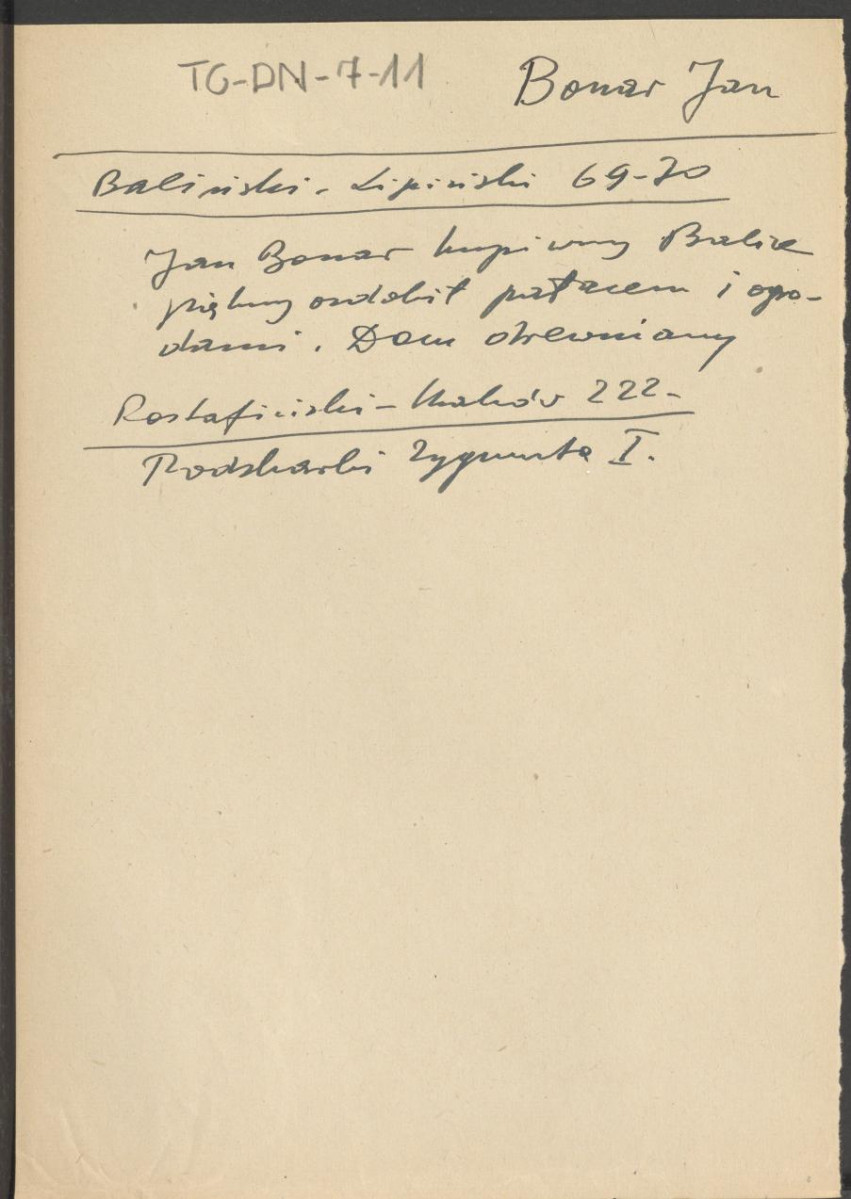 TG-DN-7-11
Bonar Jan
Baliński - Lipiński 69-70
Jan Bonar kupiwszy Balice
piękny ozdobił pałacem i ogro-
dami. Dom drewniany
Rostafiński - Kraków 222.
Podskarbi Zygmunta I.